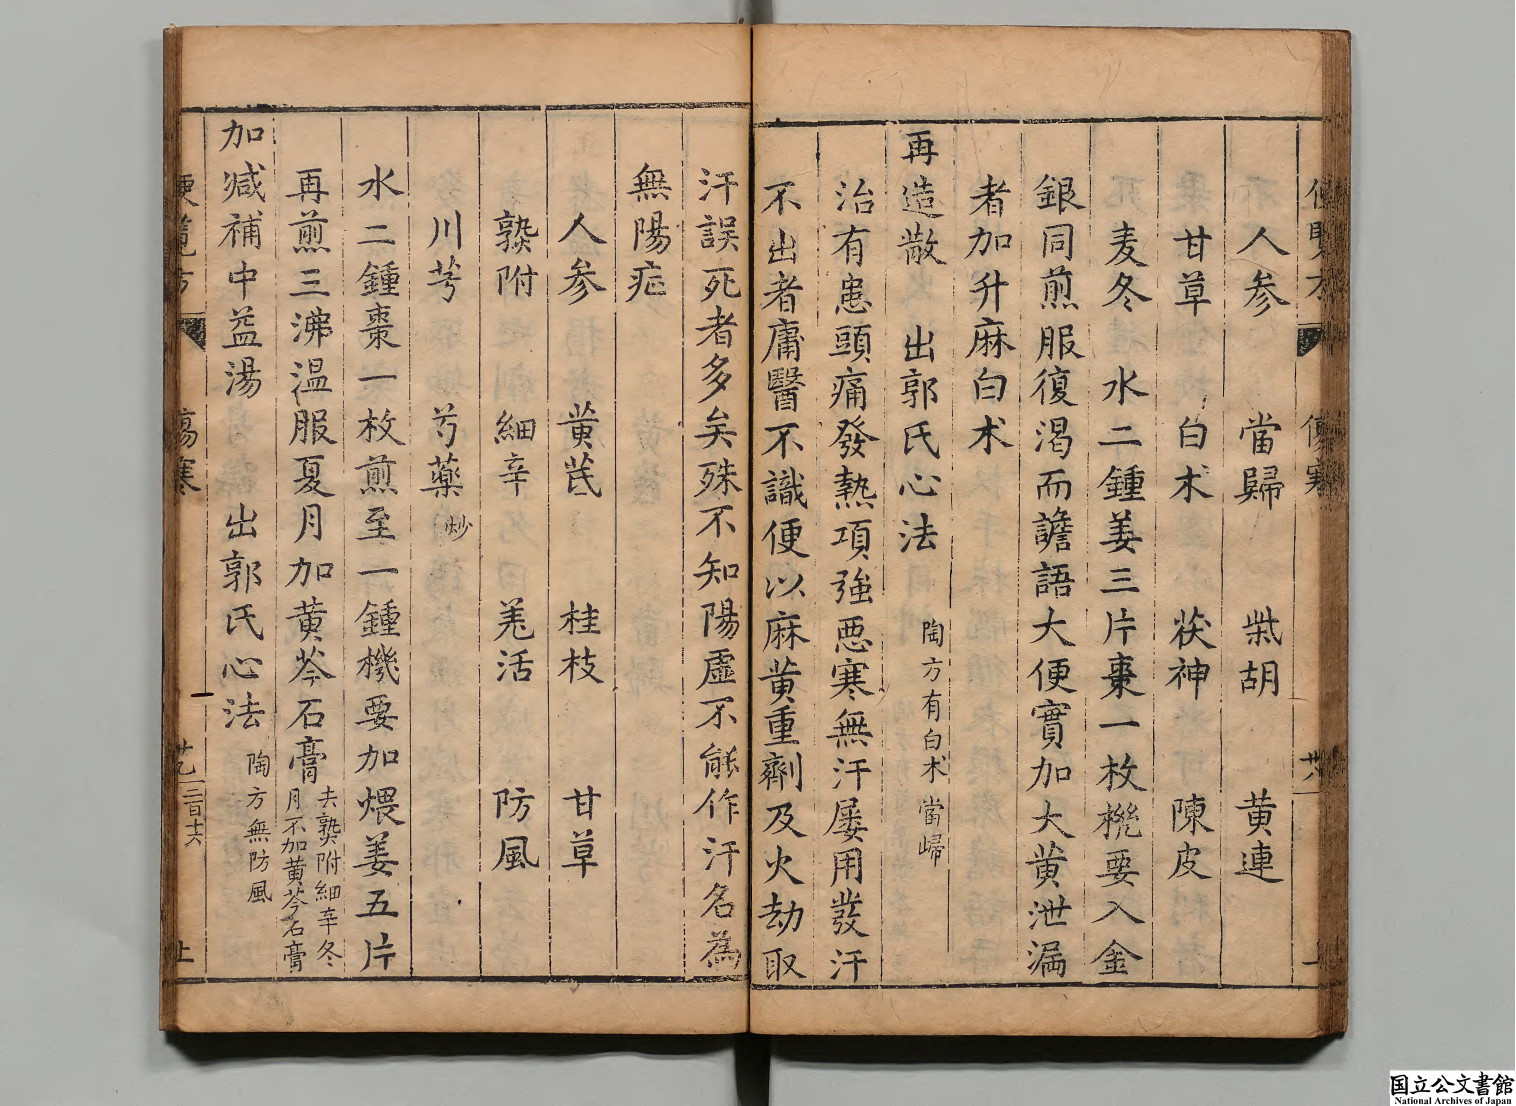 人参　當歸　柴胡　黄連
甘草　白术　茯神　陳皮
麦冬水二鍾姜三片棗一枚機要入金
銀同煎服復渴而譫語大便實加大黄泄漏
者加升麻白术
再造散　出郭氏心法　陶方有白术當歸
治有患頭痛發熱項強惡寒無汗屡用發汗
不出者庸醫不識便以麻黄重劑及火劫取
汗誤死者多矣殊不知陽虛不能作汗名為
無陽症
人参　黄芪　桂枝　甘草
熟附　細辛　羌活　防風
川芎　芍藥炒
水二鍾棗一枚煎至一鍾機要加煨姜五片
再煎三沸温服夏月加黄芩石膏去熟附細辛冬
月不加黄芩石膏
加减補中益湯　出郭氏心法　陶方無防風
便覽方　傷寒　二百十六　上
国立公文書館
National Archives of Japan